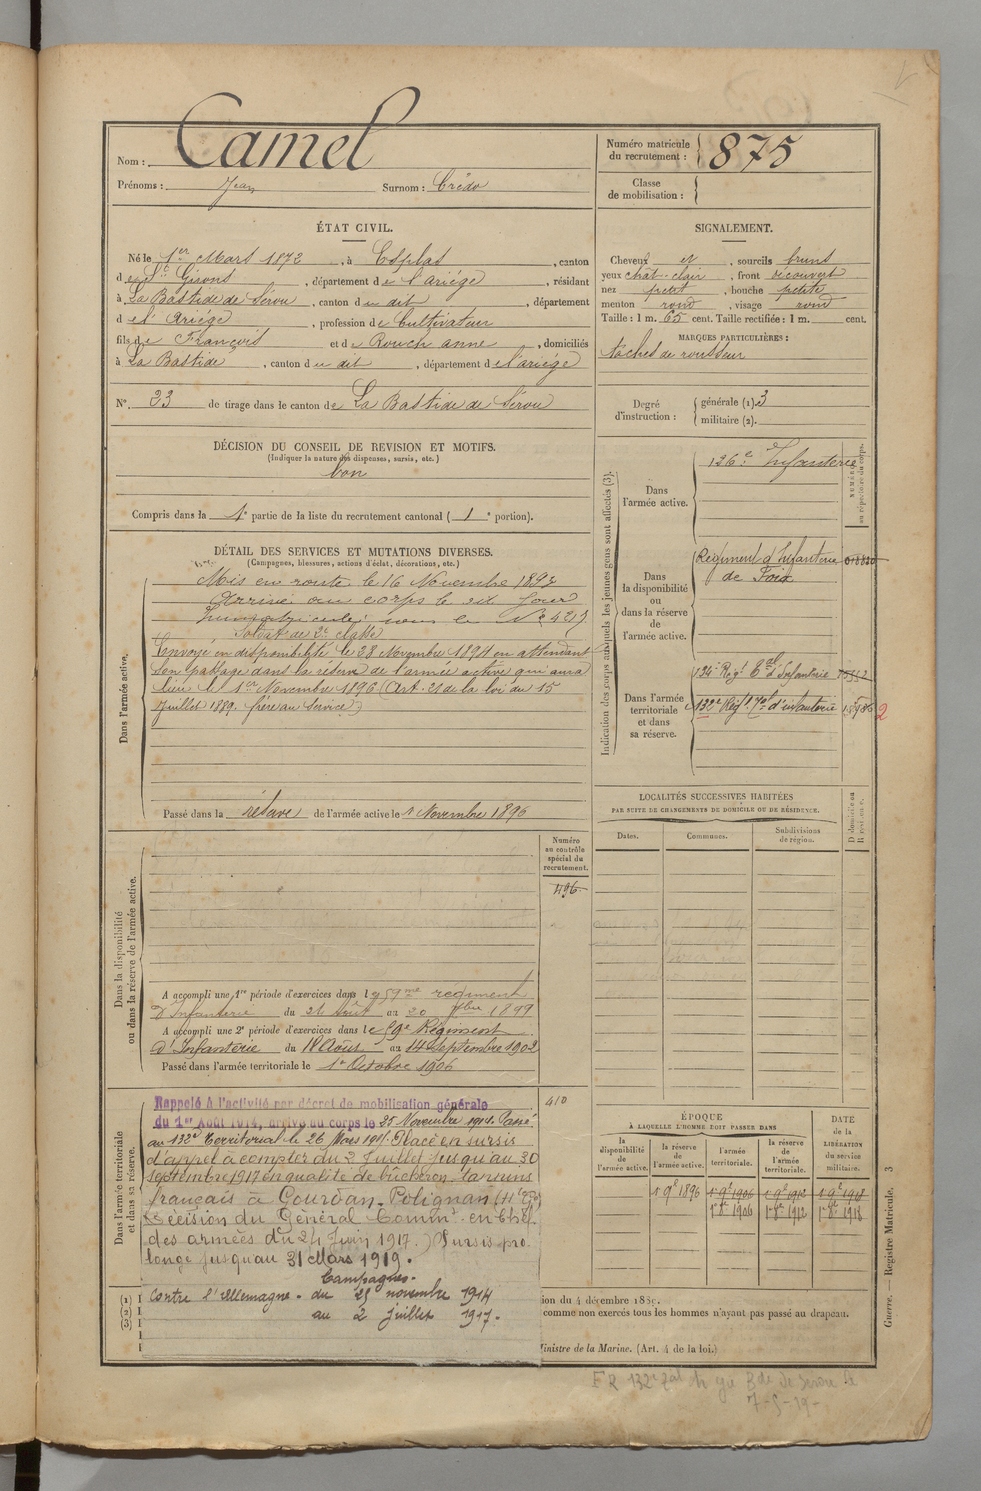 Nom : Camel
Prénoms : Jean Surnom : Crédo
Numéro matricule du recrutement : 875
Classe de mobilisation :
ÉTAT CIVIL.
Né le 1er Mars 1872, à Esplas, canton
d e St Girons, département de l'Ariège, résidant
à La Bastide de Sérou, canton du dit, département
d e l'Ariège, profession de Cultivateur
fils de François et de Rouch anne, domiciliés
à La Bastide, canton du dit, département de l'ariège
N° 23 de tirage dans le canton de La Bastide de Sérou
DÉCISION DU CONSEIL DE REVISION ET MOTIFS.
(Indiquer la nature des dispenses, sursis, etc.)
bon
Compris dans la 1e partie de la liste du recrutement cantonal ( 1e portion).
SIGNALEMENT.
Cheveux et, sourcils bruns
yeux chât-clair, front découvert
nez petit, bouche petite
menton rond, visage rond
Taille : 1 m. 65 cent. Taille rectifiée : 1 m. cent.
MARQUES PARTICULIÈRES :
tâches de rousseur
Degré d'instruction : générale (1). 3
militaire (2).
DÉTAIL DES SERVICES ET MUTATIONS DIVERSES.
(Campagnes, blessures, actions d'éclat, décorations, etc.)
Dans l'armée active.
Mis en route le 16 Novembre 1893
Arrivé au corps le dit jour
Immatriculé sous le N°
Soldat de 2e classe
Envoyé en disponibilité le 28 Novembre 1894 en attendant
son passage dans la réserve de l'armée active qui aura
lieu le 1er Novembre 1896 (Art. 21 de la loi du 15
Juillet 1889. frère au service)
Passé dans la réserve de l'armée active le 1 Novembre 1896
Indication des corps auxquels les jeunes gens sont affectés (3).
NUMÉRO au répertoire du corps.
Dans l'armée active.
126e Infanterie
Dans la disponibilité ou dans la réserve de l'armée active.
Régiment d'Infanterie
de Foix
Dans l'armée territoriale et dans sa réserve.
134e Régt Tal d'Infanterie
132e Régt Tal d'infanterie
2
LOCALITÉS SUCCESSIVES HABITÉES
PAR SUITE DE CHANGEMENTS DE DOMICILE OU DE RÉSIDENCE.
Dates. Communes. Subdivisions de région. D domicile ou R résidence.
Dans la disponibilité ou dans la réserve de l'armée active.
Numéro au contrôle spécial du recrutement.
496
A accompli une 1re période d'exercices dans le 59me régiment
d'Infanterie du 24 Août au 20 7bre 1899
A accompli une 2e période d'exercices dans le 59e Régiment
d'Infanterie du 18 Août au 14 Septembre 1902
Passé dans l'armée territoriale le 1er Octobre 1906
Dans l'armée territoriale et dans sa réserve.
410
Rappelé à l'activité par décret de mobilisation générale
du 1er Août 1914, arrivé au corps le 25 Novembre 1914. Passé
au 132e Territorial le 26 Mars 191. Placé en sursis
d'appel à compter du 2 Juillet jusqu'au 30
septembre 1917 en qualité de bûcheron
français à Gourdan-Polignan (Hte Gne)
Décision du Général Commt en Chef
des armées du 24 Juin 1917.) Sursis pro-
longé jusqu'au 31 Mars 1919.
Campagnes.
Contre l'Allemagne. du 25 novembre 1914
au 2 juillet 1917.
(1)
(2)
(3)
ÉPOQUE
À LAQUELLE L'HOMME DOIT PASSER DANS
la disponibilité de l'armée active. la réserve de l'armée active. l'armée territoriale. la réserve de l'armée territoriale. DATE de la LIBÉRATION du service militaire.
1 9e 1896 1 9e 1906 1 9e 1912 1 9e 1918
1 8e 1906 1 8e 1912 1 8e 1918
ion du 4 décembre 1889.
comme non exercés tous les hommes n'ayant pas passé au drapeau.
Ministre de la Marine. (Art. 4 de la loi.)
Guerre. — Registre Matricule. 3
7-5-19-